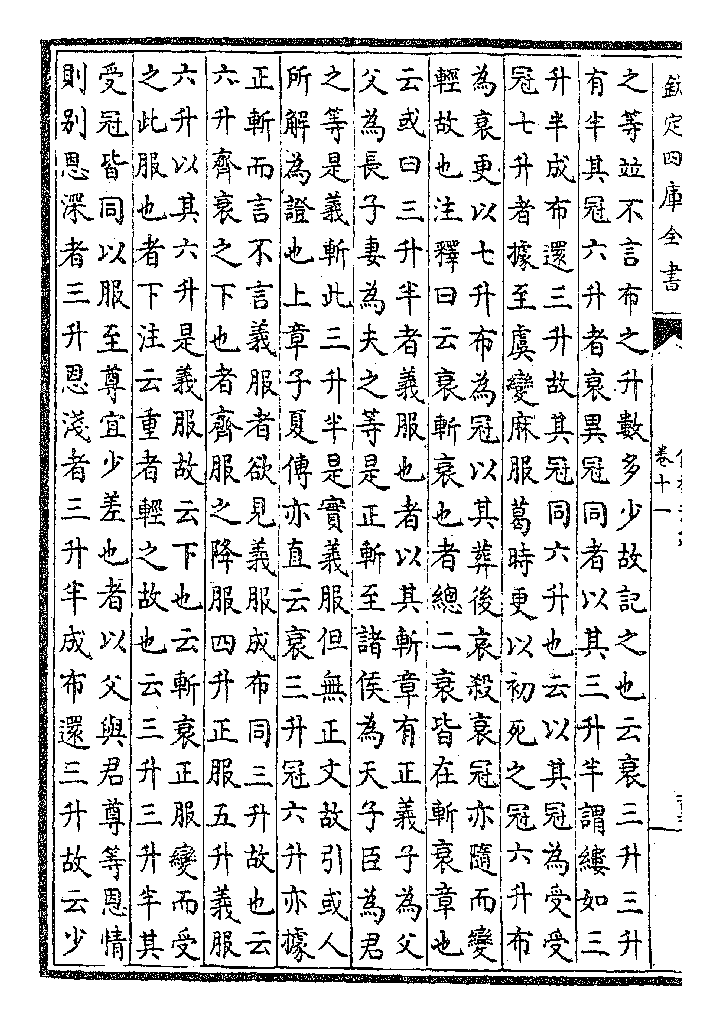 欽定四庫全書
卷十一
之等並不言布之升數多少故記之也云衰三升三升
有半其冠六升者衰異冠同者以其三升半謂縷如三
升半成布還三升故其冠同六升也云以其冠為受受
冠七升者據至虞變麻服葛時更以初死之冠六升布
為衰更以七升布為冠以其葬後哀殺衰冠亦隨而變
輕故也注釋曰云衰斬衰也者總二衰皆在斬衰章也
云或曰三升半者義服也者以其斬章有正義子為父
父為長子妻為夫之等是正斬至諸侯為天子臣為君
之等是義斬此三升半是實義服但無正文故引或人
所解為證也上章子夏傳亦直云衰三升冠六升亦據
正斬而言不言義服者欲見義服成布同三升故也云
六升齊衰之下也者齊服之降服四升正服五升義服
六升以其六升是義服故云下也云斬衰正服變而受
之此服也者下注云重者輕之故也云三升三升半其
受冠皆同以服至尊宜少差也者以父與君尊等恩情
則别恩深者三升恩淺者三升半成布還三升故云少